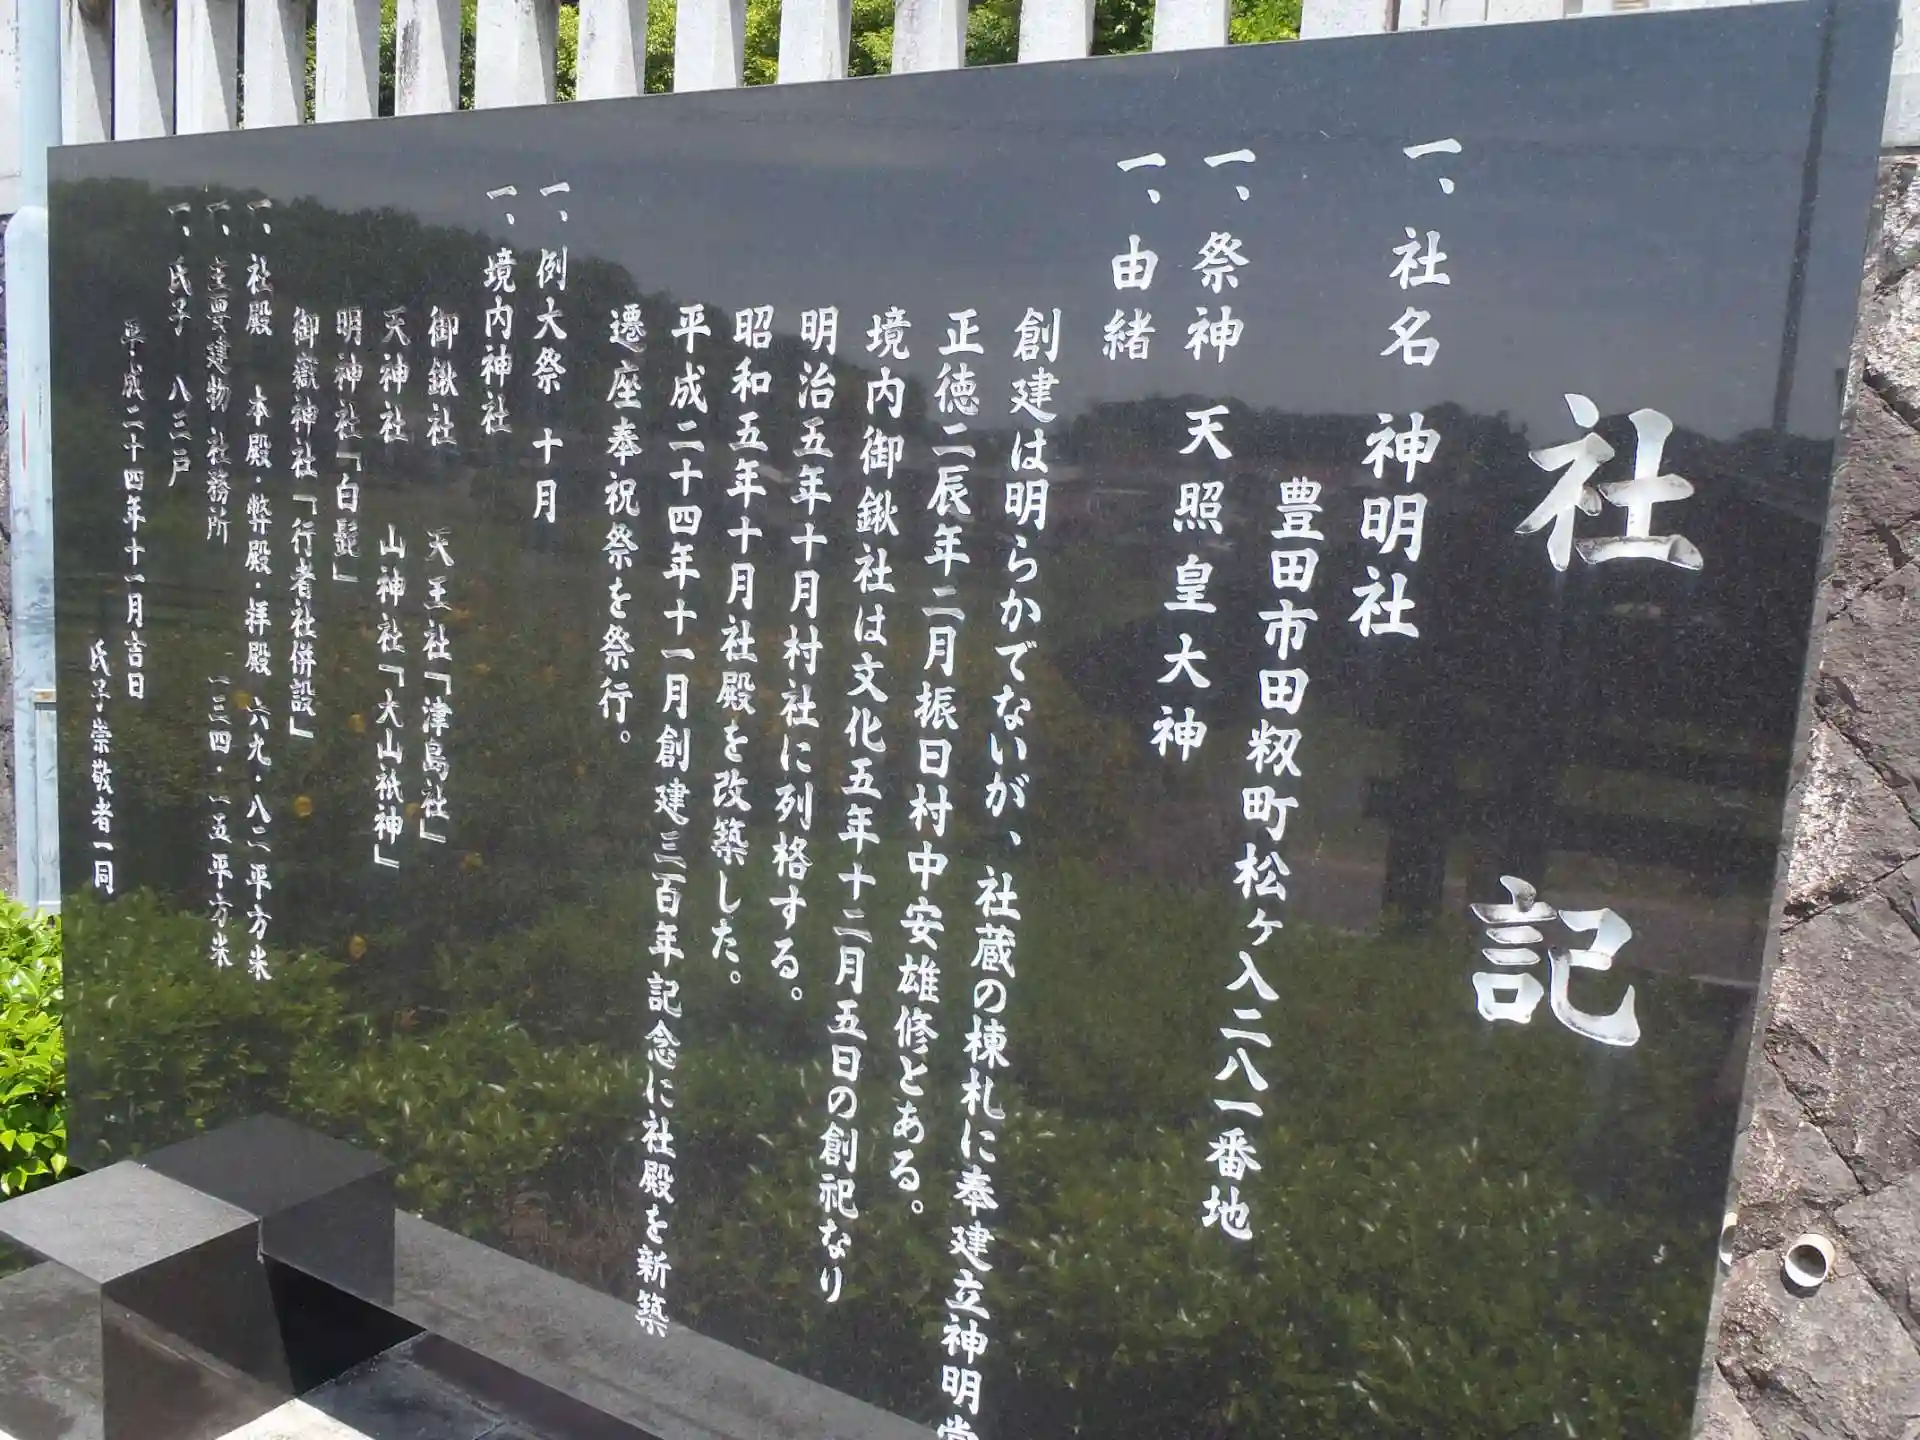 社記
一、社名 神明社
豊田市田籾町松ヶ入二八一番地
一、祭神 天照皇大神
一、由緒
創建は明らかでないが、社蔵の棟札に奉建立神明堂
正徳二辰年二月振日村中安雄修とある。
境内御鍬社は文化五年十二月五日の創祀なり
明治五年十月村社に列格する。
昭和五年十月社殿を改築した。
平成二十四年十一月創建三百年記念に社殿を新築
遷座奉祝祭を祭行。
一、例大祭 十月
一、境内神社
御鍬社 天王社「津島社」
天神社 山神社「大山祇神」
明神社「白髭」
御嶽神社「行者社併設」
一、社殿 本殿・弊殿・拝殿 六九・八二平方米
一、主要建物 社務所 一三四・一五平方米
一、氏子 八三戸
平成二十四年十一月吉日
氏子崇敬者一同